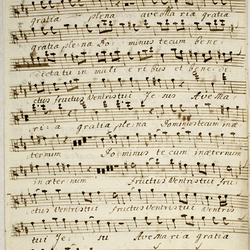 gratia plena ave Maria gratia
gratia plena Dominus tecum bene:
dicta tu in muli eribus et bene:
ctus fructus Ventris tui Jesus Ave Ma
ri: a gratia plena Dominus tecum in æ
ternum Dominus tecum in æternum
in æternum Fructus Ventris tui fru
ctus Ventris tui fructus Ventris tui fructus Ventris
tui Je: su Ave Maria gratia